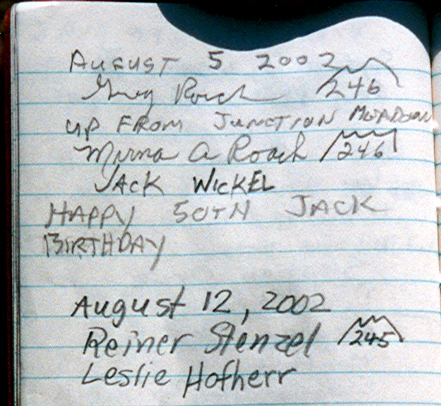 AUGUST 5 2002
Greg Roach 246
UP FROM JUNCTION MEADOW
Mirna A Roach 246
JACK WICKEL
HAPPY 50TH JACK
BIRTHDAY
August 12, 2002
Reiner Stenzel 245
Leslie Hofherr